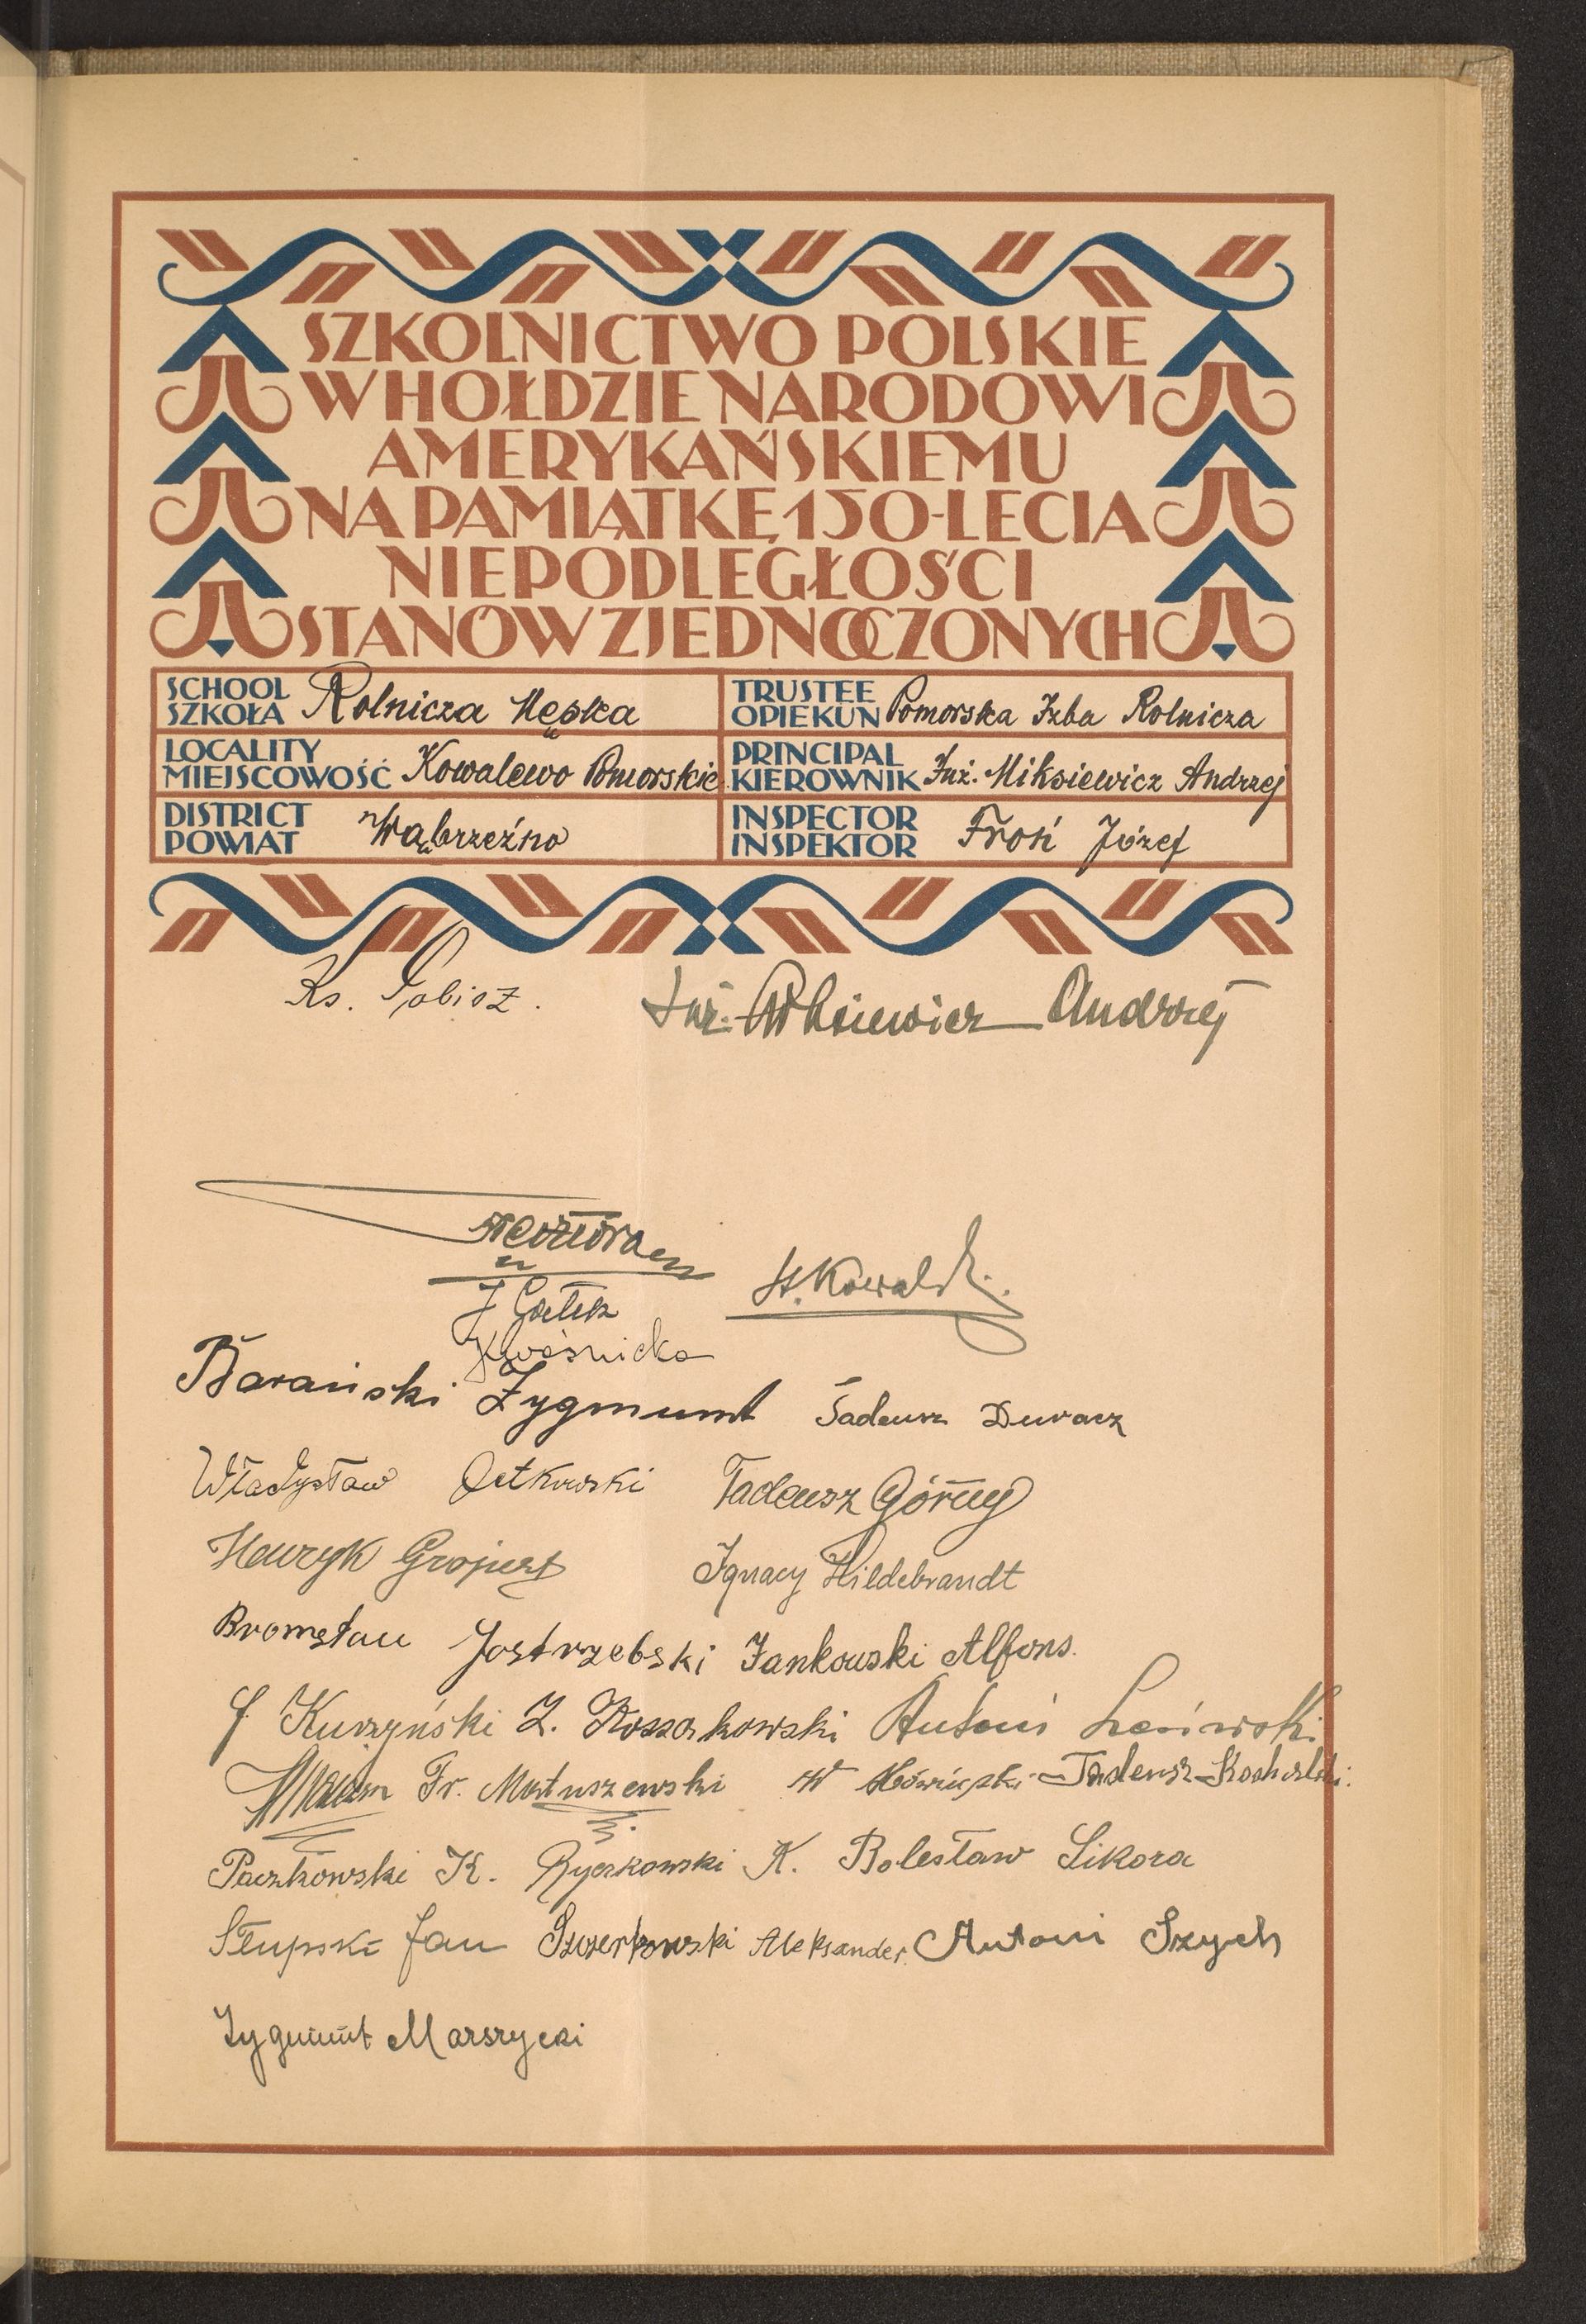 SZKOLNICTWO POLSKIE
W HOŁDZIE NARODOWI
AMERYKAŃSKIEMU
NA PAMIĄTKĘ 150-LECIA
NIEPODLEGŁOŚCI
STANÓW ZJEDNOCZONYCH
SCHOOL SZKOŁA Rolnicza Męska
TRUSTEE OPIEKUN Pomorska Izba Rolnicza
LOCALITY MIEJSCOWOŚĆ Kowalewo Pomorskie
PRINCIPAL KIEROWNIK Inż. Miksiewicz Andrzej
DISTRICT POWIAT Wąbrzeźno
INSPECTOR INSPEKTOR Froń Józef
Ks. Inż. Miksiewicz Andrzej
St. Kowalski.
J Gałek
Kwaśnicka
Barański Zygmunt Tadeusz Duracz
Władysław Tadeusz Górny
Henryk Ignacy Hildebrandt
Bronisław Jastrzębski Jankowski Alfons.
J. Kurzyński Z. Kossakowski Antoni
Fr. Matuszewski W Tadeusz
Paczkowski K. Ryczkowski K. Bolesław Sikora
Słupski Jan Szczerkowski Aleksander. Antoni Szych
Zygmunt Marszycki